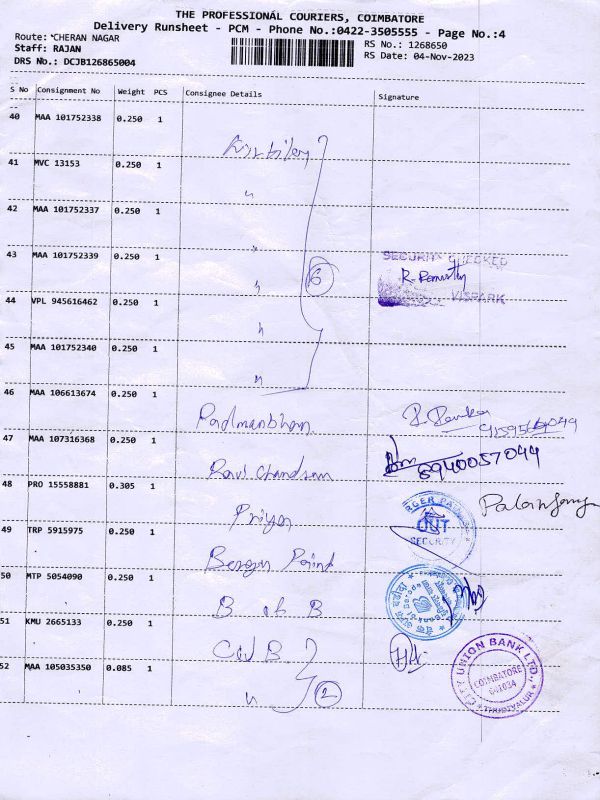 THE PROFESSIONAL COURIERS, COIMBATORE
Delivery Runsheet - PCM - Phone No.:0422-3505555 - Page No.:4
Route: CHERAN NAGAR
RS No.: 1268650
Staff: RAJAN
RS Date: 04-Nov-2023
DRS No.: DCJB126865004
S No Consignment No Weight PCS Consignee Details Signature
40 MAA 101752338 0.250 1
41 MVC 13153 0.250 1 "
42 MAA 101752337 0.250 1 "
43 MAA 101752339 0.250 1 " 6
SECURITY CHECKED
VISPARK
44 VPL 945616462 0.250 1 "
45 MAA 101752340 0.250 1 "
46 MAA 106613674 0.250 1 Padmanbhan
47 MAA 107316368 0.250 1 Ravi Chandran 8940057049
48 PRO 15558881 0.305 1 Priya
49 TRP 5915975 0.250 1 Berger Paint
SECURITY
50 MTP 5054090 0.250 1 B of B
51 KMU 2665133 0.250 1 CUB
52 MAA 105035350 0.085 1 " 2
CITY UNION BANK LTD.
COIMBATORE
641034
THUDIYALUR